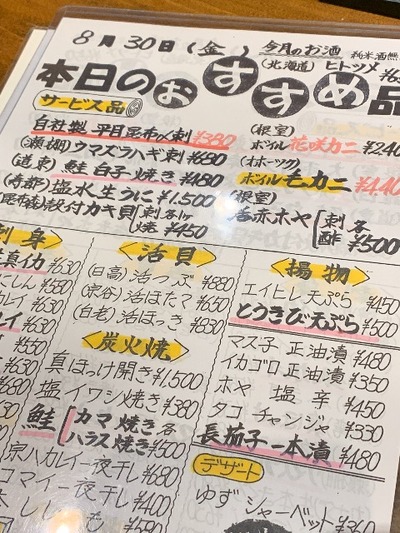 8月30日(金)
今月のお酒
(北海道) ヒトツメ
本日のおすすめ品
サービス品
自社製 平目昆布〆刺 ¥380
(瀬棚) ウマズラハギ刺 ¥680
(道東) 鮭白子焼き ¥480
(寿都) 塩水生うに ¥1,500
殻付カキ貝 [刺 各1ヶ 焼 ¥450
(根室)
ボイル花咲カニ
(オホーツク)
ボイル毛カニ
(根室)
岩赤ホヤ [刺 酢 各 ¥500
刺身
真イカ ¥630
¥550
¥630
¥630
<活貝>
(日高) 活つぶ ¥880
(宗谷) 活ほたて ¥650
(白老) 活ほっき ¥830
<炭火焼>
真ほっけ開き ¥1,500
塩イワシ焼き ¥380
鮭 [カマ焼き ハラス焼き 各 ¥500
宗ハカレイ一夜干し ¥680
コマイ一夜干し ¥400
<揚物>
エイヒレ天ぷら ¥450
とうきび天ぷら ¥500
マス子正油漬 ¥480
イカゴロ正油漬 ¥350
ホヤ塩辛 ¥450
タコチャンジャ ¥330
長茄子一本漬 ¥480
デザート
ゆずシャーベット